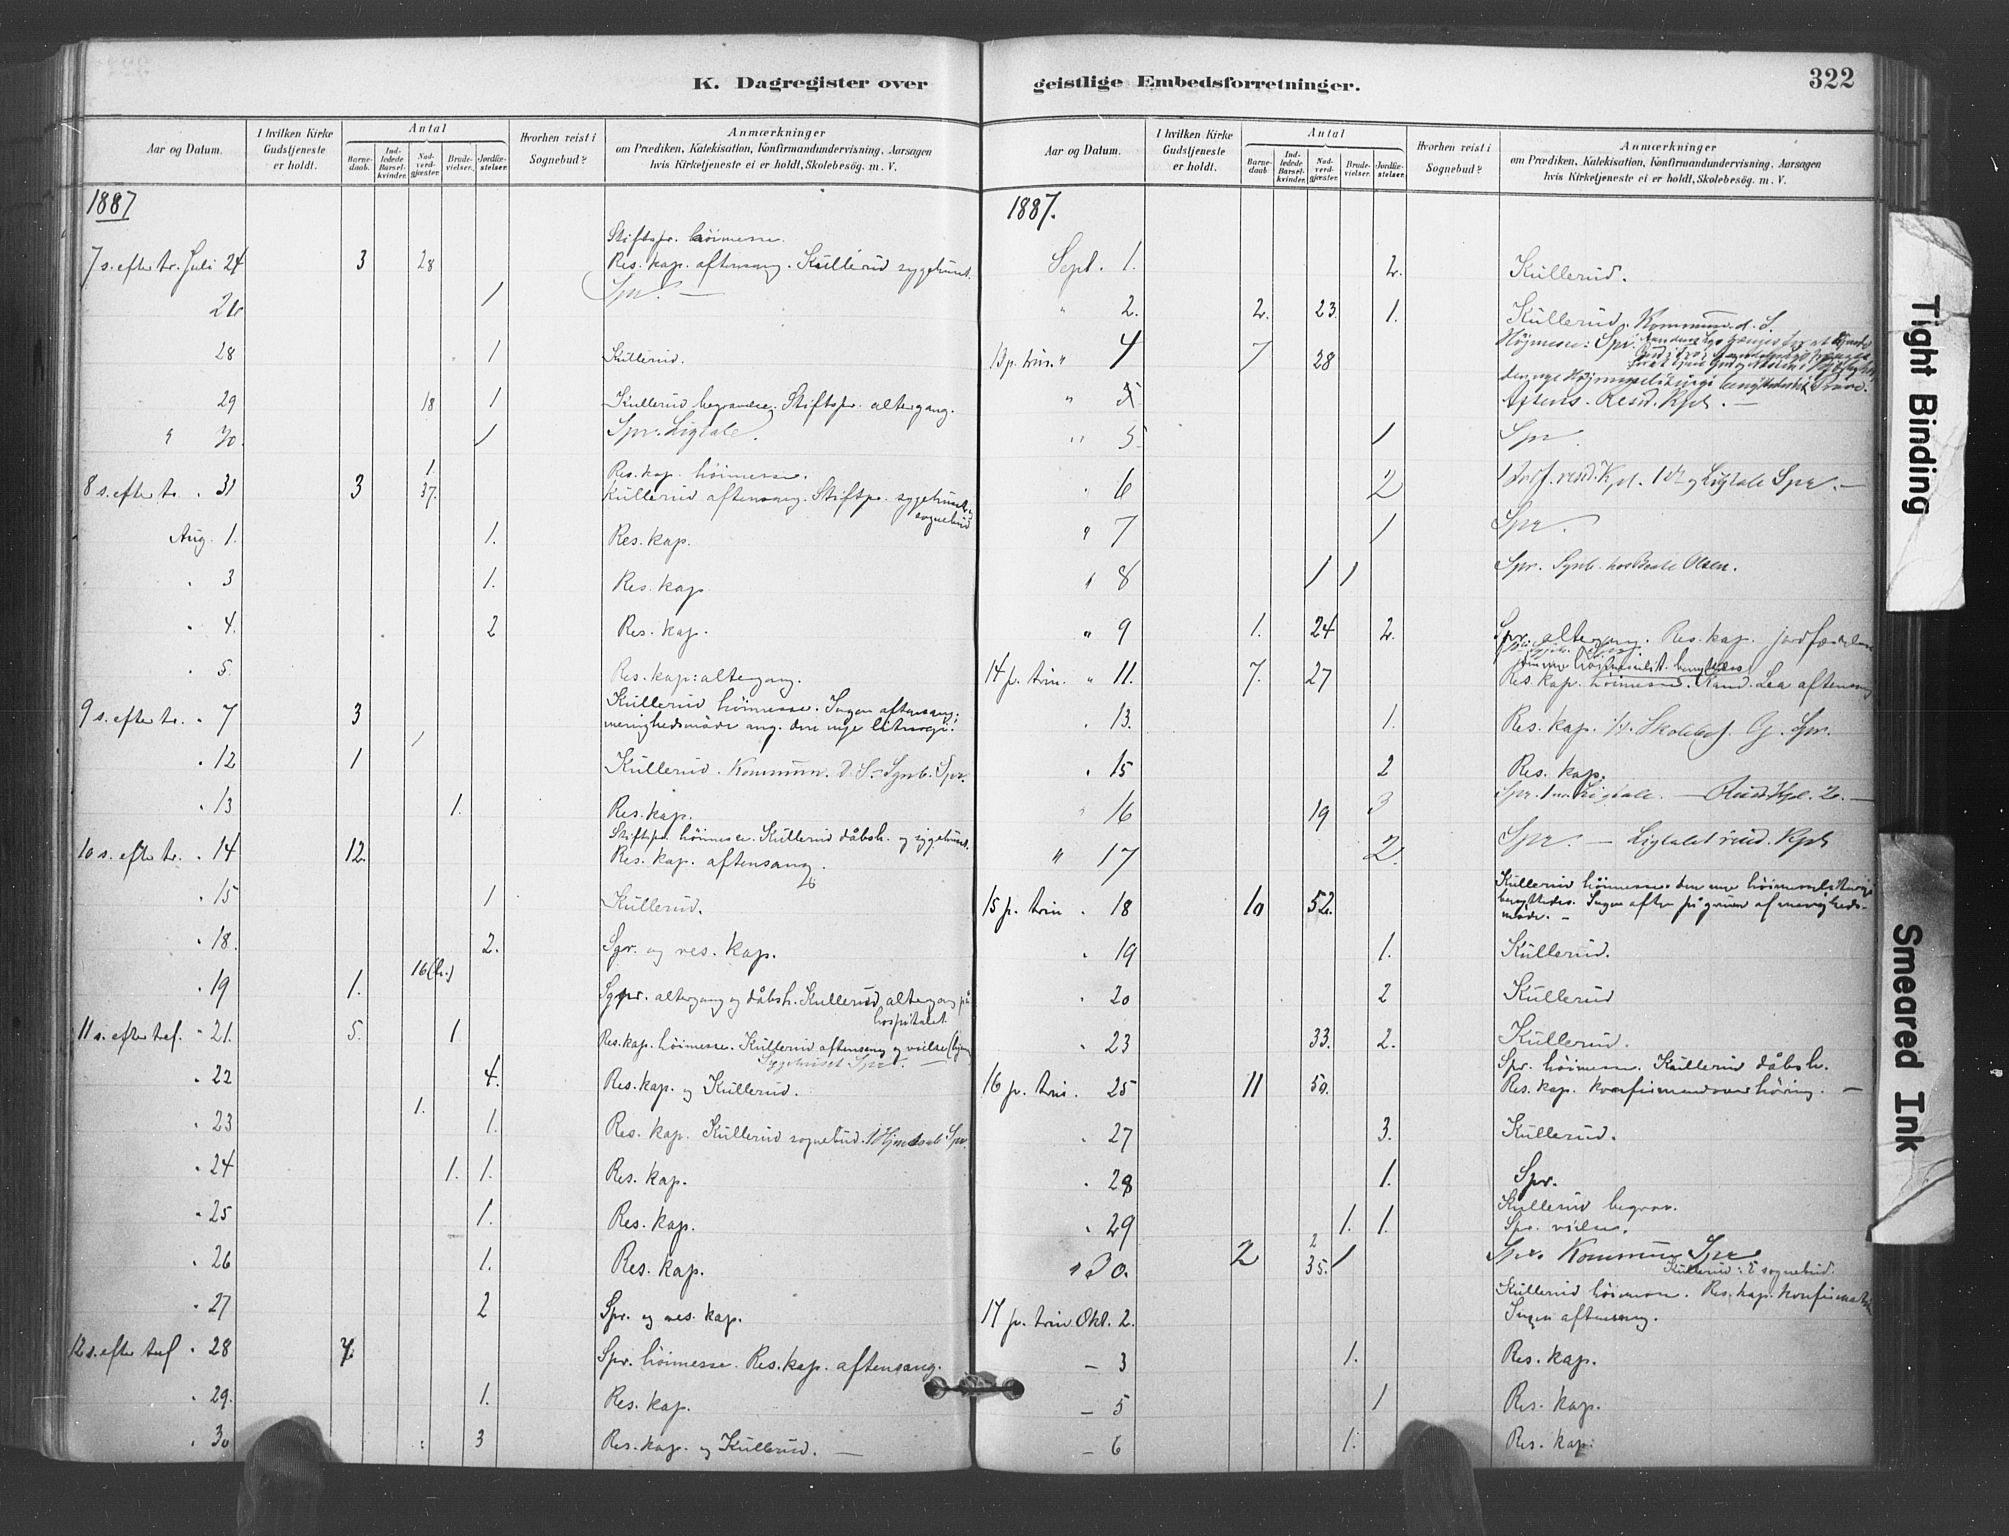 K. Dagregister over
Aar og Datum.
I hvilken Kirke Gudstjeneste er holdt.
Antal
Barnedaab.
Indledede Barselkvinder.
Nadverdgjæster.
Brudevielser.
Jordfæstelser.
Hvorhen reist i Sognebud?
Anmærkninger
om Prædiken, Katekisation, Konfirmandundervisning, Aarsagen
hvis Kirketjeneste ei er holdt, Skolebesøg. m. V.
1887
Stiftspr. höimesse.
7 s. efter tr. Juli 24 3 28 Res. kap. aftensang. Kullerud sygehuset.
26 1 Spr. —
28 1 Kullerud.
29 18 1 Kullerud begravelse. Stiftspr. altergang.
" 30. 1 Spr. Ligtale.
1. Res. kap. höimesse.
8 s. efter tr. " 31 3 37. Kullerud aftensang. Stiftspr. sygehuset og
sognebud
Aug. 1. 1. Res. kap.
" 3 1. Res. kap
" 4. 2 Res. kap.
" 5. Res. kap: altergang.
Kullerud höimesse. Ingen aftensang:
9 s. efter tr. " 7 3 menighedsmöde ang. den nye liturgi.
" 12 1 1 Kullerud. Kommun. D. S. Spr.
" 13 1. Res. kap.
Stiftspr. höimesse. Kullerud dåbsh. og sygehuset.
10 s. efter tr. " 14 12. Res. kap. aftensang.
" 15 1 Kullerud.
" 18. 2. Spr. og res. kap.
16
" 19 1. Spr. altergang og dåbsh. Kullerud altergang på
hospitalet
11 s. efter tref. " 21. 5. 1 Res. kap. höimesse. Kullerud aftensang og vielse
Sygehuset Spr. —
" 22 4. Res. kap. og Kullerud.
" 23 1. 1. Res. kap. Kullerud sognebud. Spr.
" 24 1. 1. Res. kap.
" 25 1. Res. kap.
" 26 1. Res. kap.
" 27 2 Spr. og res. kap.
12 s. efter tref " 28 7 Spr. höimesse. Res. kap. aftensang.
" 29. 1. Res. kap.
" 30 3 Res. kap. og Kullerud. —
geistlige Embedsforretninger.
322
Aar og Datum.
I hvilken Kirke Gudstjeneste er holdt.
Antal
Barnedaab.
Indledede Barselkvinder.
Nadverdgjæster.
Brudevielser.
Jordfæstelser.
Hvorhen reist i Sognebud?
Anmærkninger
om Prædiken, Katekisation, Konfirmandundervisning, Aarsagen
hvis Kirketjeneste ei er holdt, Skolebesög. m. V.
1887.
Sept. 1. 2. Kullerud.
" 2. 2. 23. 1. Kullerud. Kommun. d. S.
13 p. trin. " 4 7 28 Højmesse: Spr.
Aftens. Resid. Kpl. —
" 5 1 Spr.
" 6 2 resid. Kpl. og Ligtale Spr. —
" 7 1 Spr.
" 8 1 1 Spr. Olsen.
" 9 1. 24 2. Spr. altergang. Res. kap. jordfæstelse
14 p. trin. " 11. 7. 27 Res. kap. höimesse. Kand. Lea aftensang
" 13. 1. Res. kap. Spr.
" 15 2 Res. kap.
" 16 19 3 Spr. Ligtale. — Resid. Kpl. 2. —
" 17 2. Spr. — Ligtalet resid. Kpl
Kullerud höimesse. den nye höimesseliturgi
15 p. trin " 18 10 52. benyttedes. Ingen aften på grund af menigheds-
möde. —
" 19 1. Kullerud.
" 20 2 Kullerud
" 23 33. 2. Kullerud.
Spr. höimesse. Kullerud dåbsh.
16 p. trin. " 25 11 50. Res. kap. konfirmandoverhöring. —
" 27 3. Kullerud.
" 28 1. Spr.
Kullerud begrav.
" 29 1. 1. Spr. vielse.
2
" 30. 2 35. 1 Spr. Kommun Spr
Kullerud: 2 sognebud.
Kullerud höimesse. Res. kap. konfirmation
17 p. trin Okt. 2. Ingen aftensang.
— 3 1. Res. kap.
— 5 1 Res. kap.
— 6 1. Res. kap.
Tight Binding
Smeared Ink